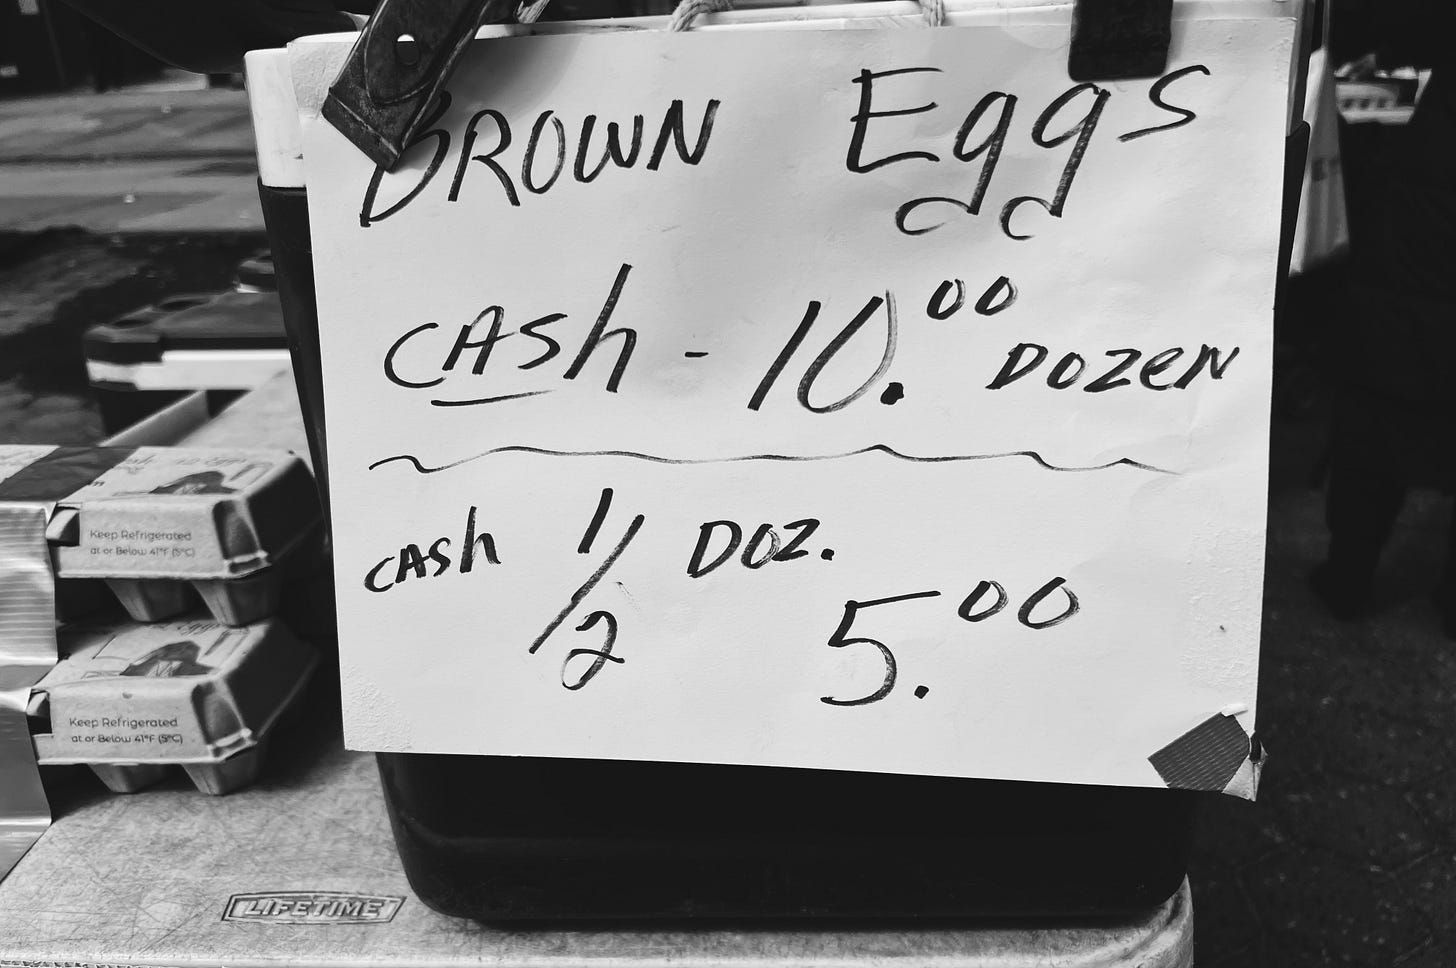 BROWN Eggs
CASh - 10.00 DOZEN
CASh 1/2 DOZ.
5.00
Keep Refrigerated
at or Below 41°F (5°C)
Keep Refrigerated
at or Below 41°F (5°C)
LIFETIME